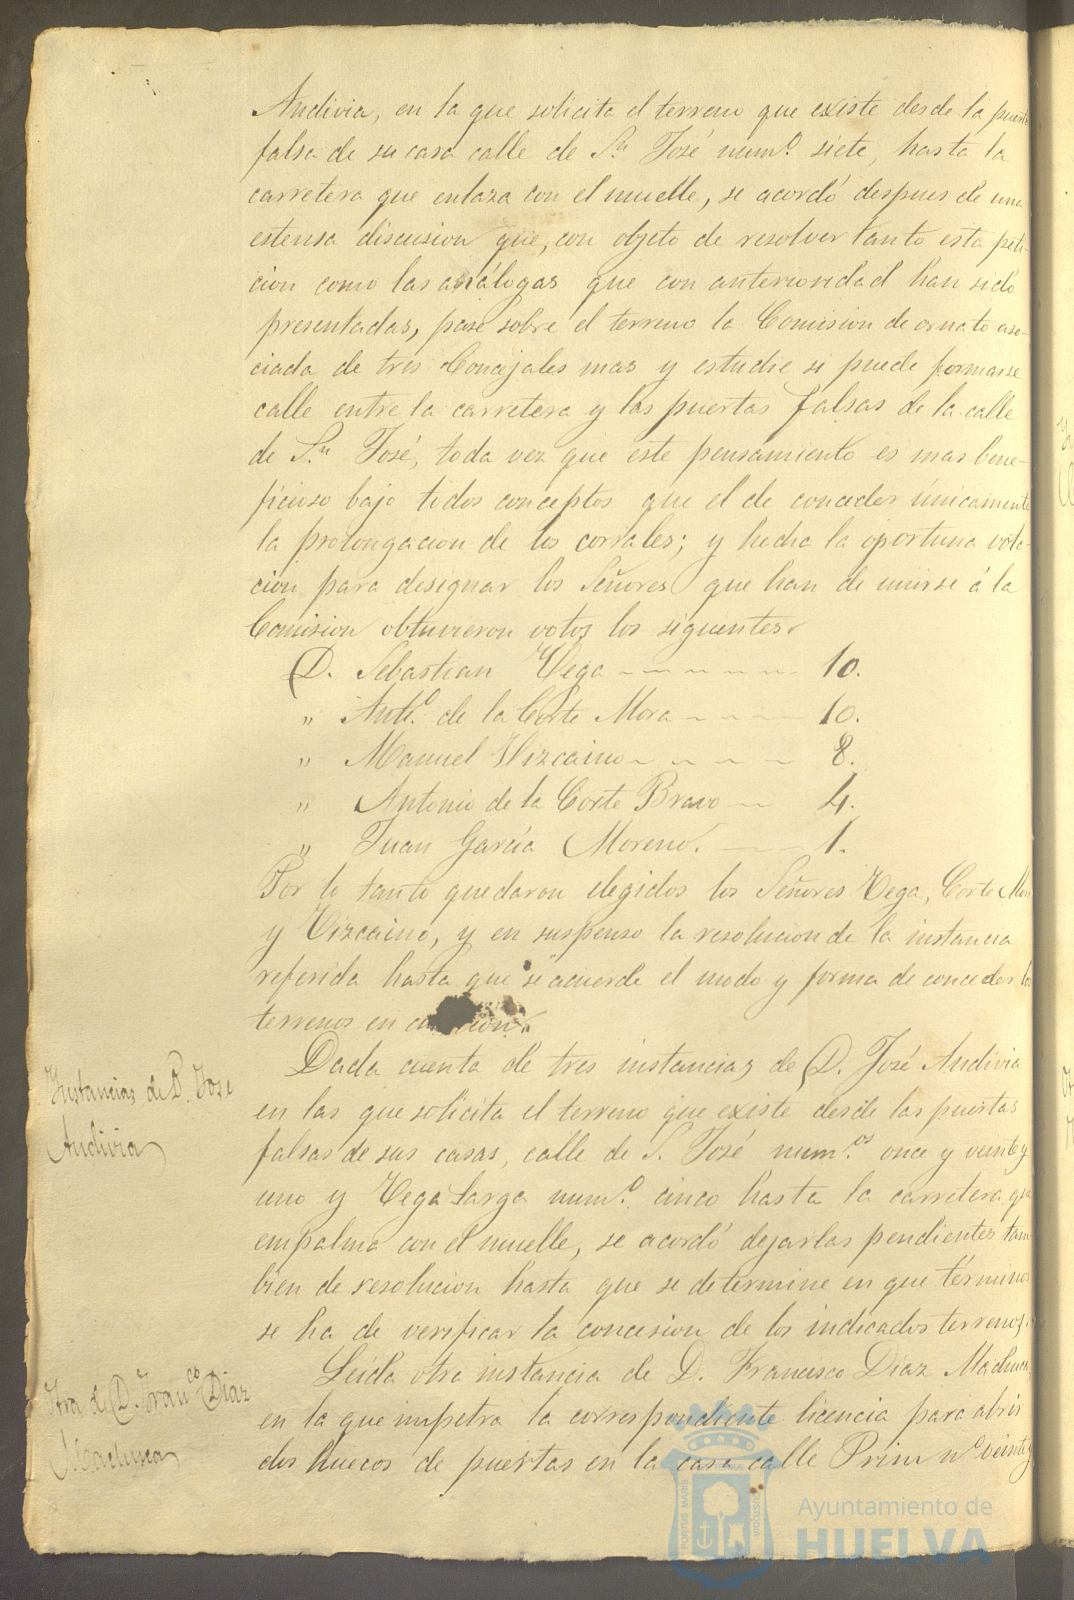 Andivia, en la que solicita el terreno que existe desde la puerta
falsa de su casa calle de Sn José num.º siete, hasta la
carretera que enlaza con el muelle, se acordó despues de una
estensa discusion que, con objeto de resolver tanto esta peti-
cion como las análogas que con anterioridad han sido
presentadas, pase sobre el terreno la Comision de ornato aso-
ciada de tres Concejales mas y estudie si puede formarse
calle entre la carretera y las puertas falsas de la calle
de S.n José, toda vez que este pensamiento es mas bene-
ficioso bajo todos conceptos que el de conceder únicamente
la prolongacion de los corrales; y hecha la oportuna vota-
cion para designar los Señores que han de unirse á la
Comision obtuvieron votos los siguientes.
D. Sebastian Vega 10.
" Ant.º de la Corte Mora 10.
" Manuel Vizcaino 8.
" Antonio de la Corte Bravo 4.
" Juan García Moreno. 1.
Por lo tanto quedaron elegidos los Señores Vega, Corte Mora
y Vizcaino, y en suspenso la resolucion de la instancia
referida hasta que se acuerde el modo y forma de conceder los
terrenos en
Instancias de D. José
Andivia
Dada cuenta de tres instancias de D. José Andivia
en las que solicita el terreno que existe desde las puertas
falsas de sus casas, calle de S. José num.os once y veinte y
uno y Vega larga num.º cinco hasta la carretera que
empalma con el muelle, se acordó dejarlas pendientes tam
bien de resolucion hasta que se determine en que términos
se ha de verificar la concesion de los indicados terrenos.
Otra de D. Franco Diaz
Machuca
Leida otra instancia de D. Francisco Diaz Machuca,
en la que impetra la correspondiente licencia para abrir
dos huecos de puertas en la casa calle Prim nº veinte y
PORTUS MARIS
CUSTODIA
Ayuntamiento de
HUELVA